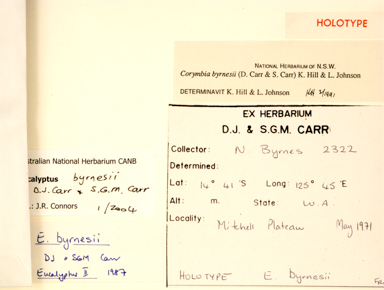 HOLOTYPE
NATIONAL HERBARIUM OF N.S.W.
Corymbia byrnesii (D. Carr & S. Carr) K. Hill & L. Johnson
DETERMINAVIT K. Hill & L. Johnson KH 2/1991
EX HERBARIUM
D.J. & S.G.M. CARR
Collector: N Byrnes 2322
Determined:
Lat: 14° 41 'S Long: 125° 45 'E
Alt: m. State: W.A.
Locality: Mitchell Plateau May 1971
HOLOTYPE E. byrnesii
stralian National Herbarium CANB
calyptus byrnesii
D.J. Carr & S.G.M. Carr
.: J.R. Connors 1/2004
E. byrnesii
DJ & SGM Carr
Eucalyptus II 1987